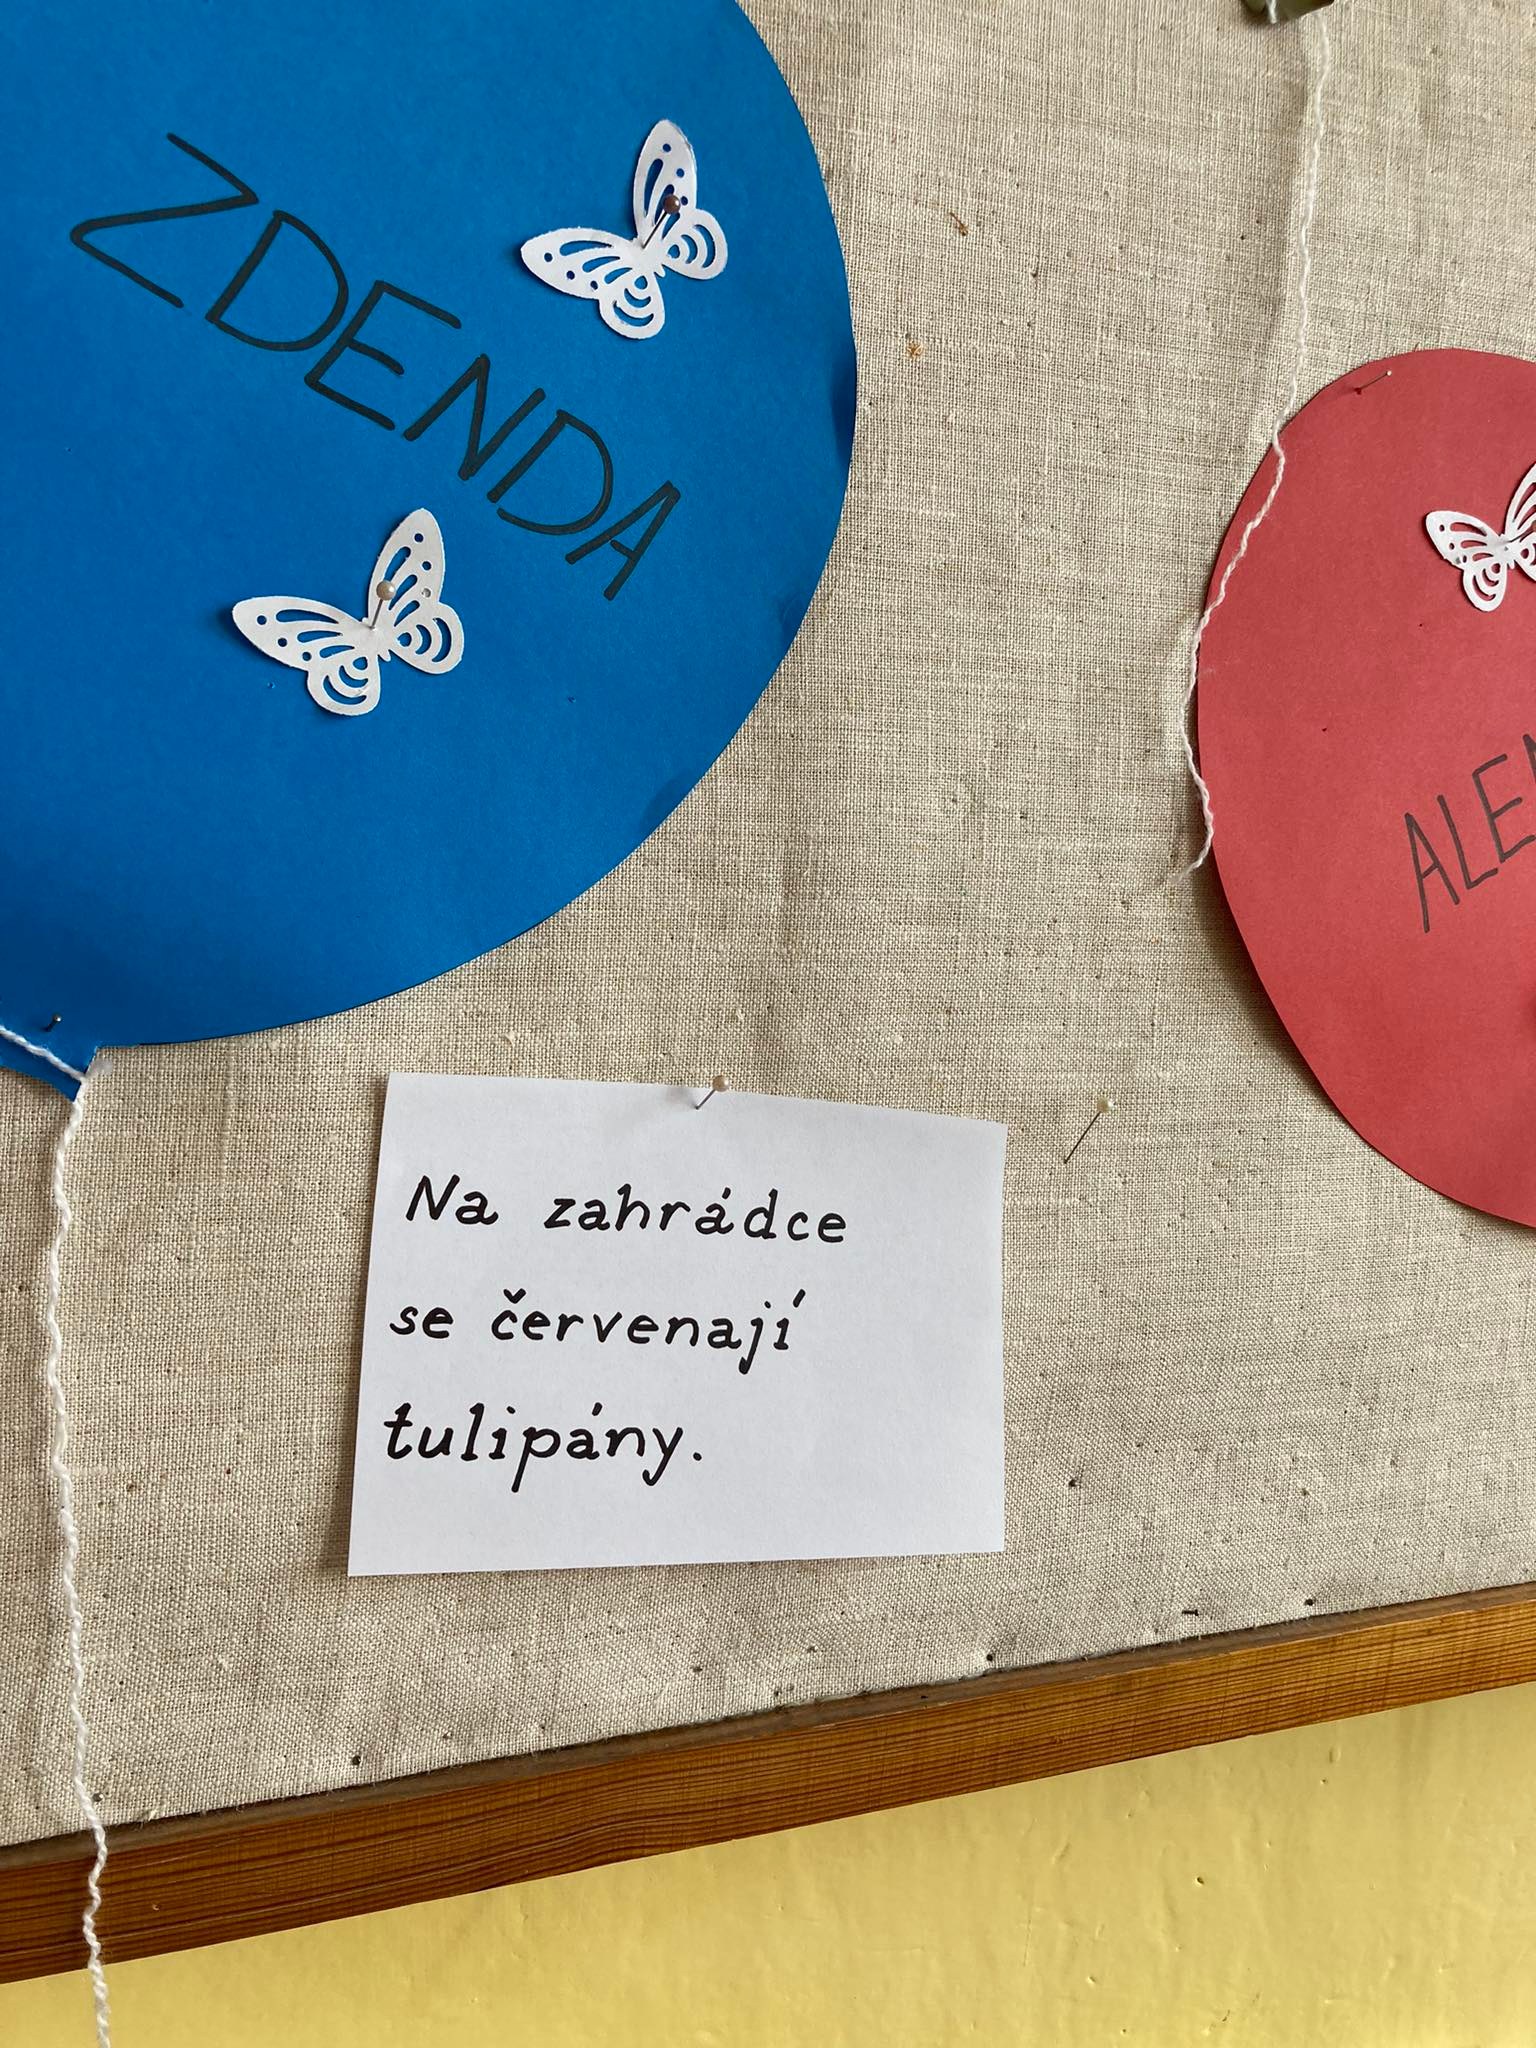 ZDENDA
Na zahrádce
se červenají
tulipány.